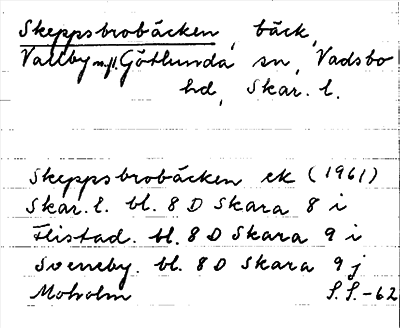 Skeppsbrobäcken, bäck,
Vallby m.fl. Götlunda sn, Vadsbo
hd, Skar. l.
Skeppsbrobäcken ek (1961)
Skar. l. bl. 8 D Skara 8 i
Flistad. bl. 8 D Skara 9 i
Sveneby. bl. 8 D Skara 9 j
Moholm S.S.-62